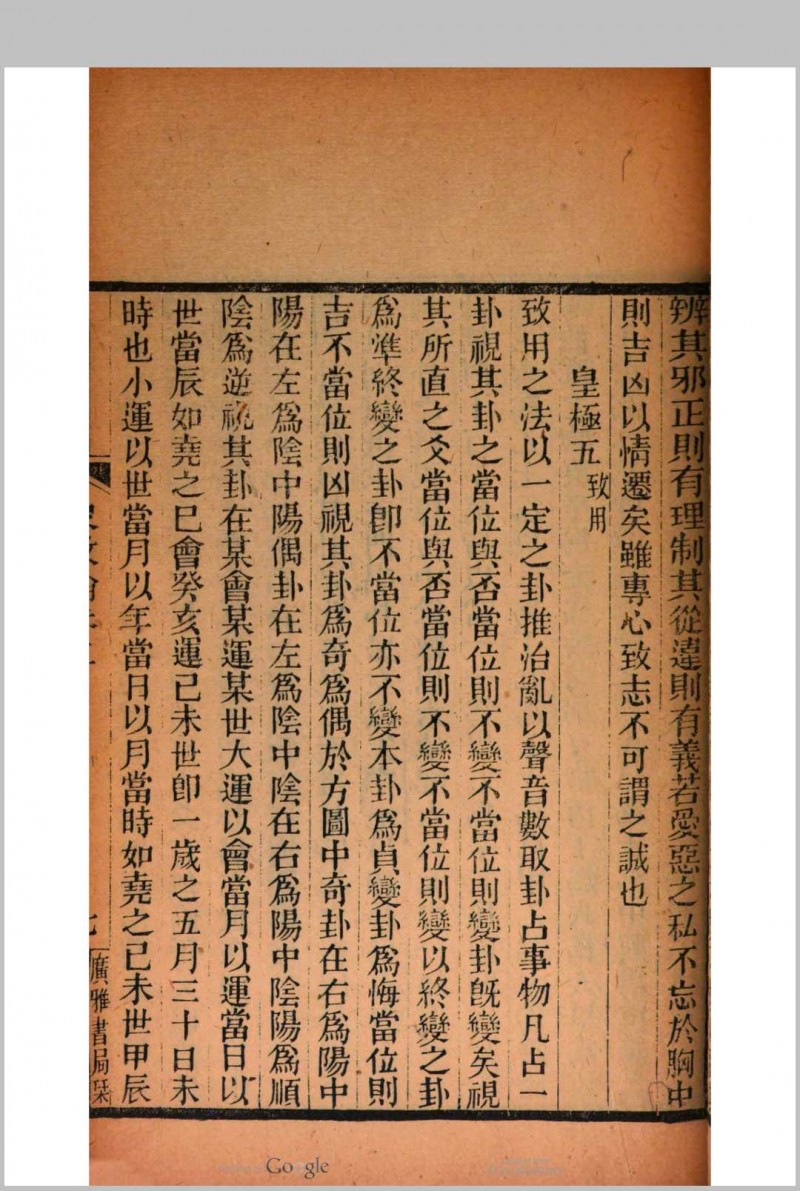 辨其邪正則有理制其從違則有義若愛惡之私不忘於胸中
則吉凶以情遷矣雖專心致志不可謂之誠也
皇極五 致用
致用之法以一定之卦推治亂以聲音數取卦占事物凡占一
卦視其卦之當位與否當位則不變不當位則變卦旣變矣視
其所直之爻當位與否當位則不變不當位則變以終變之卦
爲準終變之卦卽不當位亦不變本卦爲貞變卦爲悔當位則
吉不當位則凶視其卦爲奇爲偶於方圖中奇卦在右爲陽中
陽在左爲陰中陽偶卦在左爲陰中陰在右爲陽中陰陽爲順
陰爲逆視其卦在某會某運某世大運以會當月以運當日以
世當辰如堯之巳會癸亥運己未世卽一歲之五月三十日未
時也小運以世當月以年當日以月當時如堯之己未世甲辰
廣雅書局栞
Google